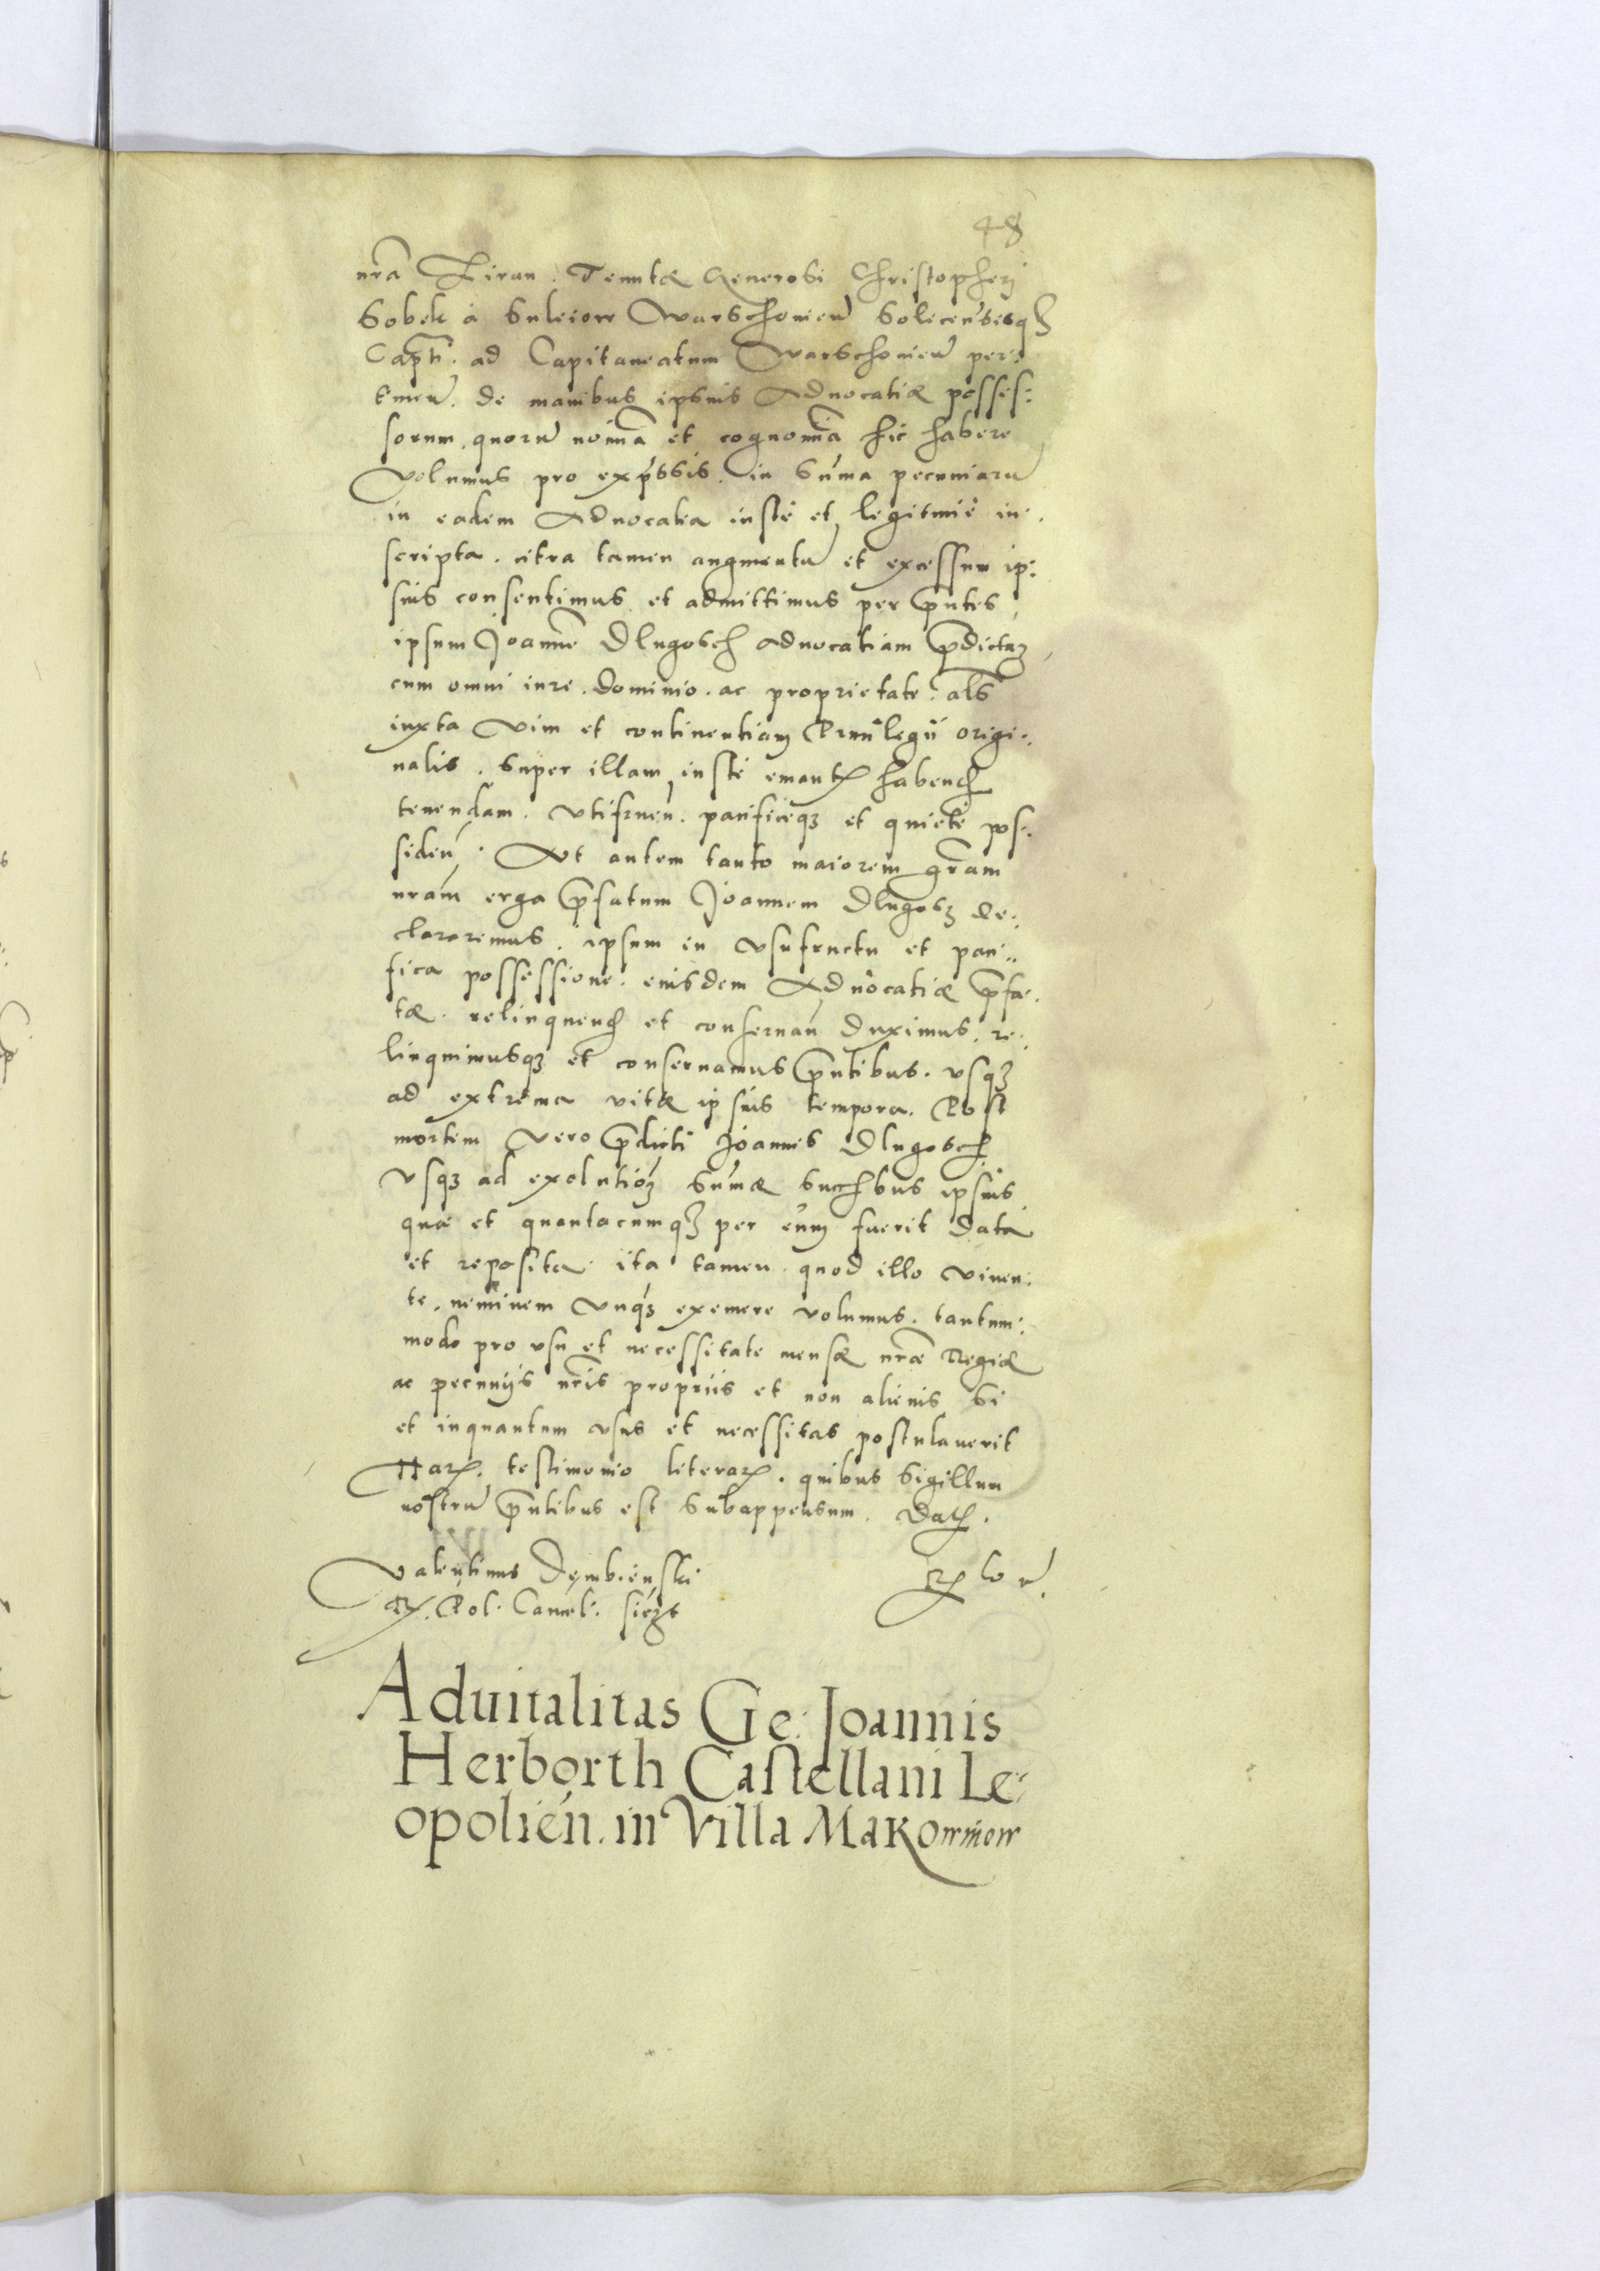 48
nrã Liran. Tenutæ Generosi Christopheri
Sobek à Suleiow Warschouien̄ Solecen̄sisq3
Capti: ad Capitaneatum Warschouien̄ per:
tinen̄. de manibus ipsius Aduocatiæ posses:
sorum. quorū noiña et cognoiña hic habere
Volumus pro exp̄ssis. in Sum̄a pecuniarū
in eadem Aduocatia iustè et legitimè in:
scripta. citra tamen augmentū et excessum ip:
sius consentimus et admittimus per p̄ntes
ipsum Joannē Dlugosch aduocatiam p̄dictaɜ
cum omni iure. dominio. ac proprietate. als̄
iuxta Vim et continentiam Priuilegii origi:
nalis. super illam iustè emanatɜ habend
tenendam. Vtifruen̄. pacificeqɜ et quietè pos:
siden̄. Vt autem tanto maiorem gr̄am
nram̄ erga p̄fatum Joannem Dlugosɜ de:
clararemus. ipsum in Vsufructu et paci:
fica possessione. eiusdem Aduocatiæ p̄fa:
tæ. relinquend et conseruan̄ duximus. re:
linquimusqɜ et conseruamus p̄ntibus. vsqɜ
ad extrema vitæ ipsius tempora. Post
mortem vero p̄dicti Joannis Dlugosch
Vsqɜ ad exolutioɜ̄ Sum̄æ succ̄bus ipsius
quæ et quantacumqɜ per eum fuerit data
et reposita. ita tamen quod illo viuen:
te. neminem Vnqɜ̄ exemere volumus. tantum:
modo pro vsu et necessitate mensæ nrǣ Regiæ
ac pecuniis nrīs propriis et non alienis si
et inquantum vsus et necessitas postulauerit
Harɜ. testimonio literarɜ. quibus Sigillum
nostrū p̄ntibus est Subappensum. Datɜ.
Valentinus Dembienski
R. Pol. Cancel. sīɜt
Aduitalitas Ge: Joannis
Herborth Castellani Le:
opolień. in Villa Makowniow